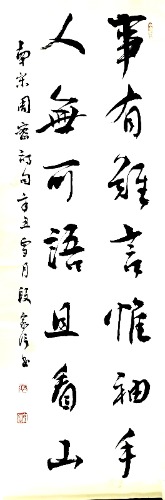 事有難言惟袖手
人無可語且看山
南宋周密詩句辛丑雪月段